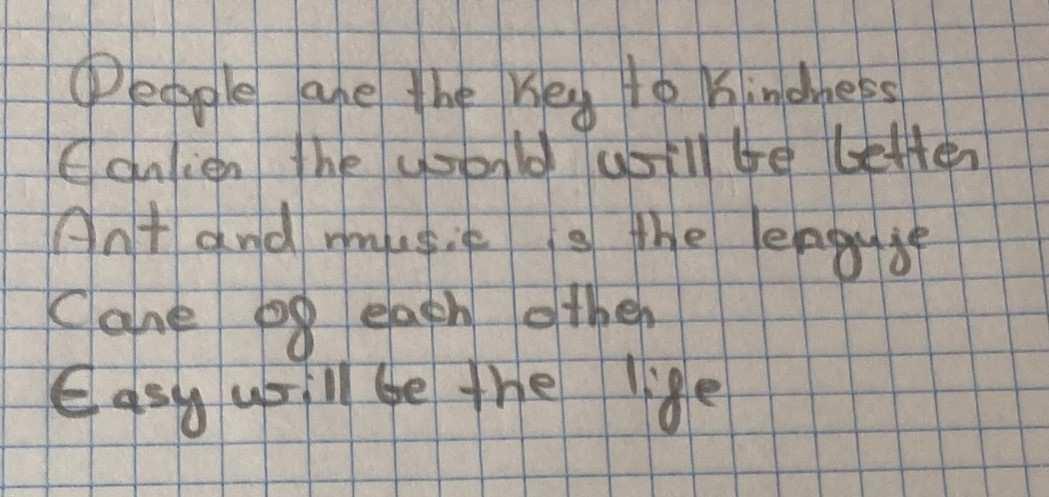 People are the key to kindness
Earlier the world will be better
Art and music is the lenguje
Care of each other
Easy will be the life